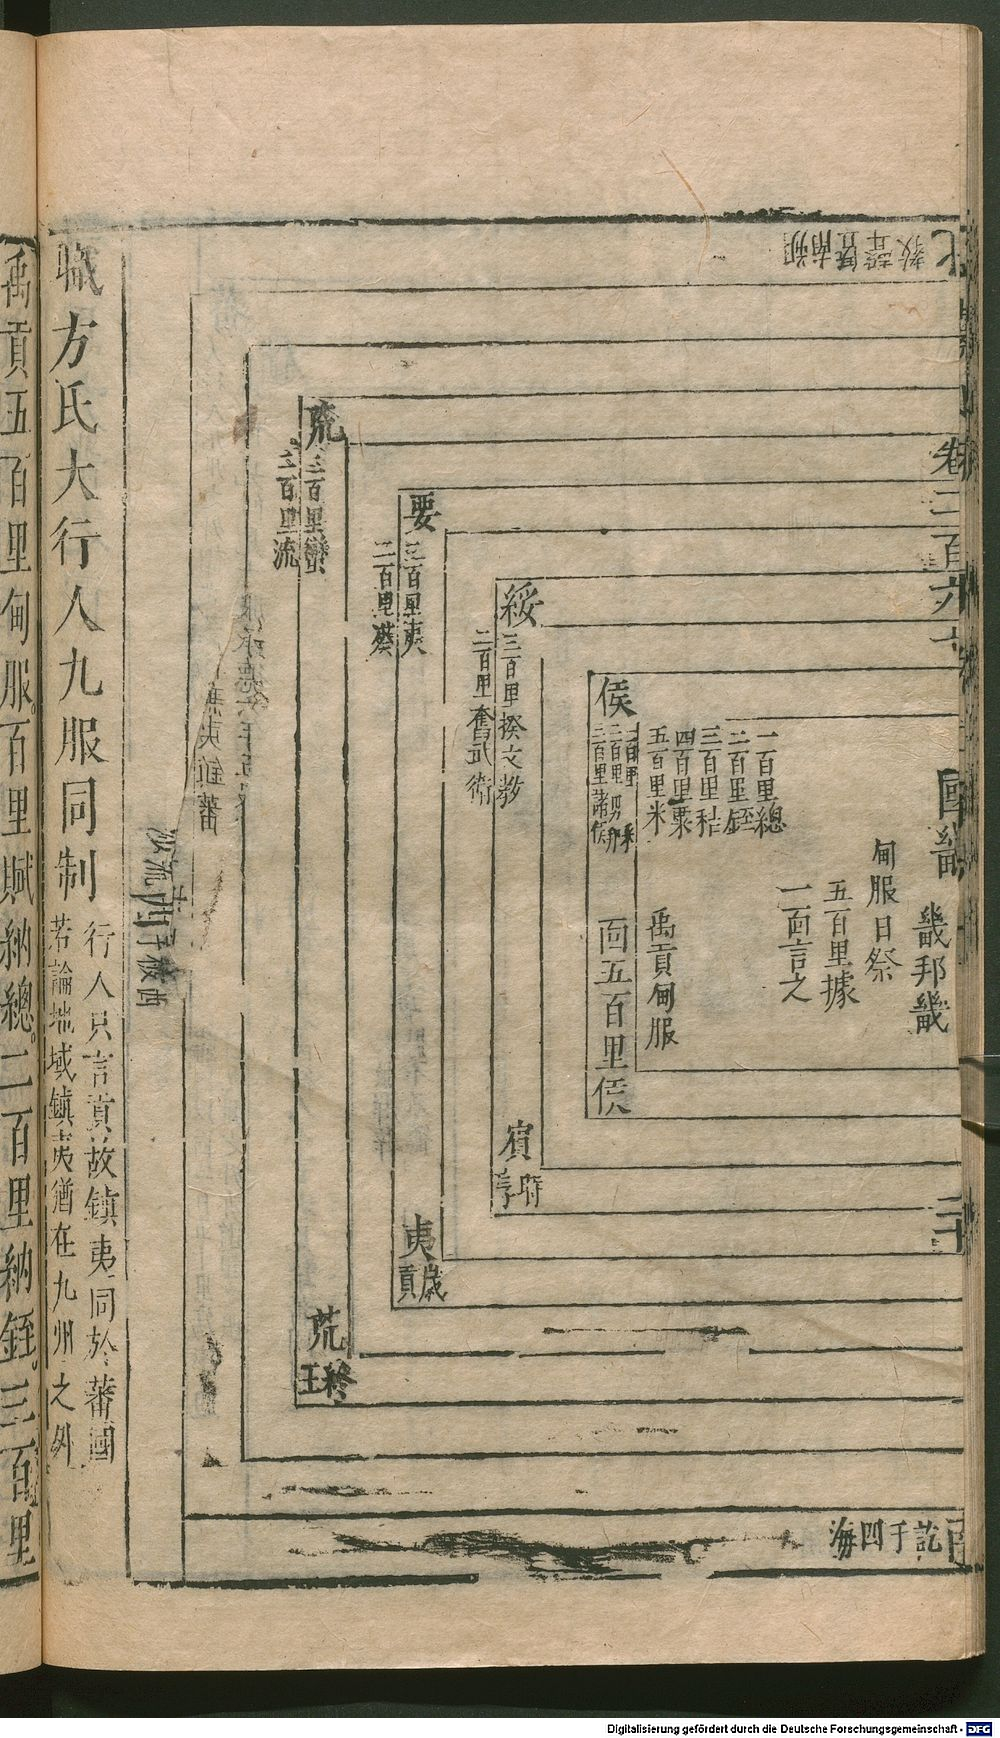 朔南曁聲教
卷二百六十
國畿
畿邦畿
甸服日祭
五百里據
一面言之
一百里總
二百里銍
三百里秸
四百里粟
五百里米
禹貢甸服
侯
二百里男邦
三百里諸侯
面五百里侯
綏
三百里揆文教
二百里奮武衛
賓
時享
要
三百里夷
二百里蔡
夷
歲貢
荒
三百里蠻
二百里流
荒
終王
蕪夷鎮蕃
西被于流沙
訖于四海
職方氏大行人九服同制
行人只言貢故鎮夷同於蕃國
若論地域鎮夷猶在九州之外
禹貢五百里甸服。百里賦納總。二百里納銍。三百里
Digitalisierung gefördert durch die Deutsche Forschungsgemeinschaft - DFG